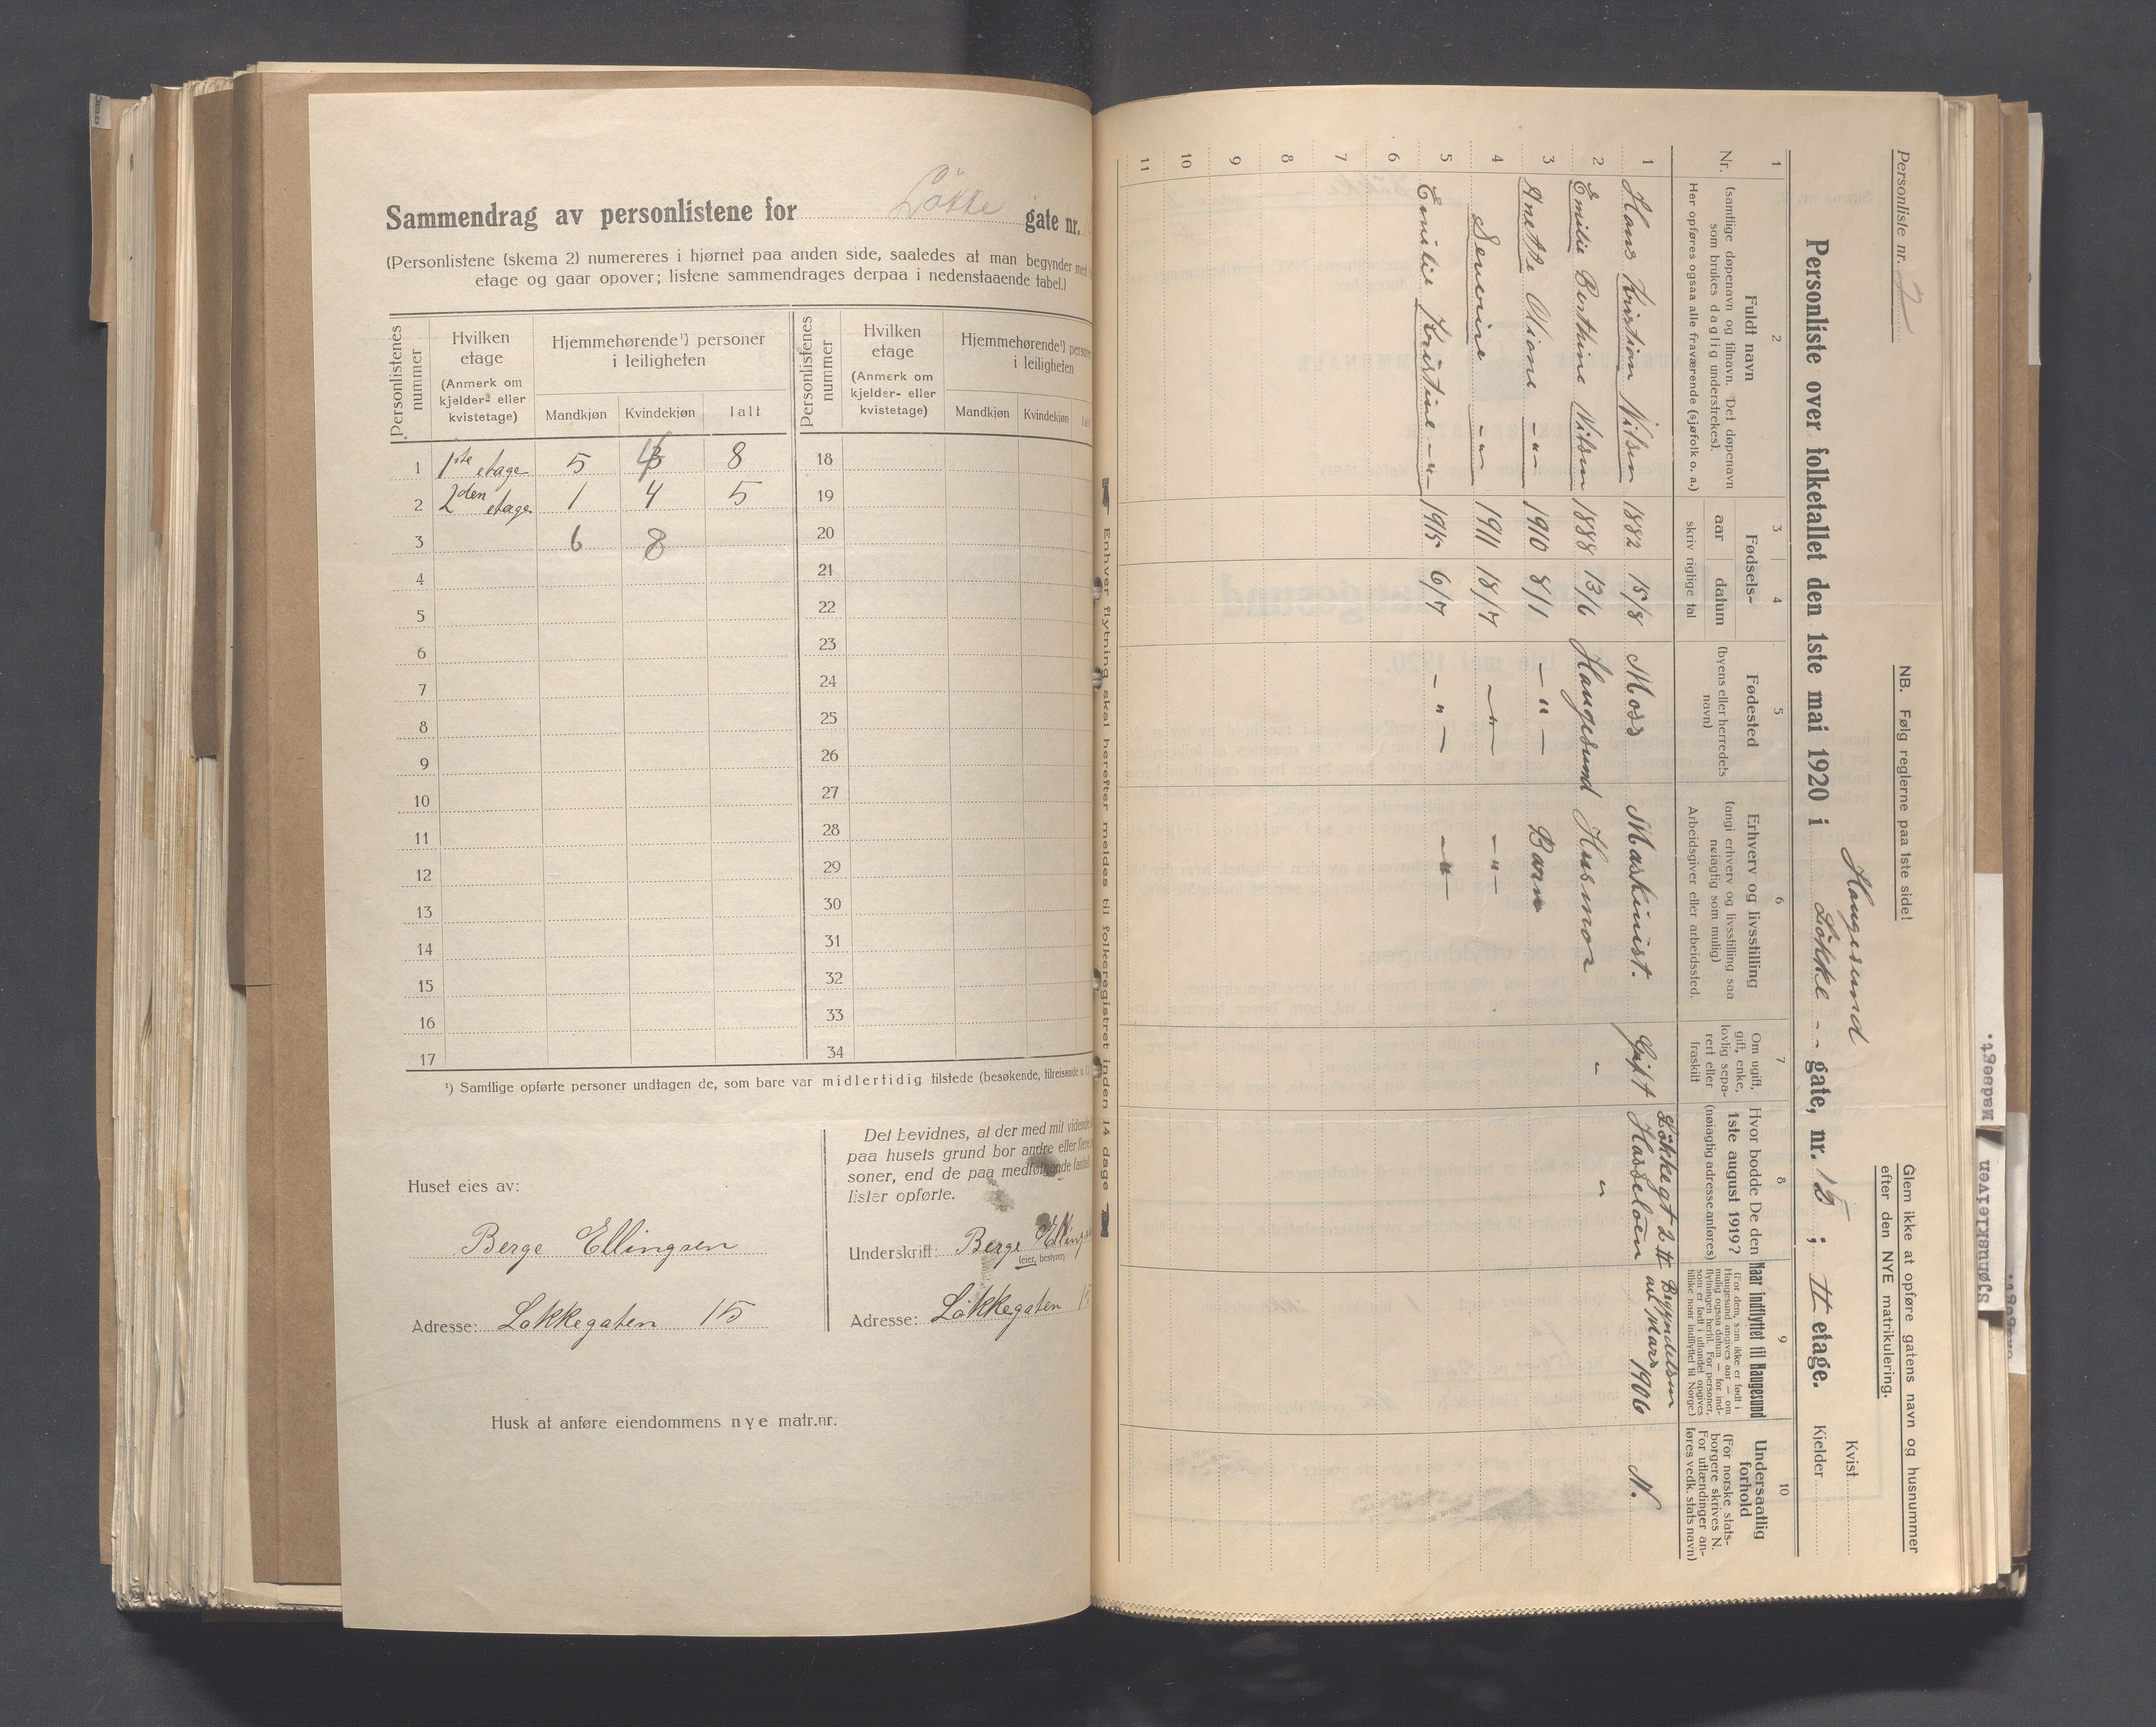 Sammendrag av personlistene for Løkke gate nr.
(Personlistene (skema 2) numereres i hjørnet paa anden side, saaledes at man begynder med
etage og gaar opover; listene sammendrages derpaa i nedenstaaende tabel.)
Personlistenes nummer
Hvilken etage
(Anmerk om kjelder- eller kvistetage)
Hjemmehørende¹) personer i leiligheten
Mandkjøn Kvindekjøn Ialt
Personlistenes nummer
Hvilken etage
(Anmerk om kjelder- eller kvistetage)
Hjemmehørende¹) personer i leiligheten
Mandkjøn Kvindekjøn Ialt
1 1ste etage 5 4 8 18
2 2den etage 1 4 5 19
3 6 8 20
4 21
5 22
6 23
7 24
8 25
9 26
10 27
11 28
12 29
13 30
14 31
15 32
16 33
17 34
¹) Samtlige opførte personer undtagen de, som bare var midlertidig tilstede (besøkende, tilreisende o. l.)
Huset eies av:
Berge Ellingsen
Adresse: Løkkegaten 15
Det bevidnes, at der med mit vidende
paa husets grund bor andre eller flere
soner, end de paa medfølgende (antal)
lister opførte.
Underskrift: Berge Ellings
(eier, bestyrer)
Adresse: Løkkegaten 1
Husk at anføre eiendommens nye matr.nr.
Enhver flytning skal herefter meldes til folkeregistret inden 14 dage
Personliste nr. 2
NB. Følg reglerne paa 1ste side!
Glem ikke at opføre gatens navn og husnummer
efter den NYE matrikulering.
Haugesund
Personliste over folketallet den 1ste mai 1920 i Løkke - - gate, nr. 15 ; II etage.
Kvist
Kjelder
1 2 3 4 5 6 7 8 9 10
Nr.
Fuldt navn
(samtlige døpenavn og tilnavn. Det døpenavn
som brukes daglig understrekes).
Her opføres ogsaa alle fraværende (sjøfolk o. a.)
Fødsels-
aar datum
skriv rigtige tal
Fødested
(byens eller herredets
navn)
Erhverv og livsstilling
(angi erhverv og livsstilling saa
nøiagtig som mulig)
Arbeidsgiver eller arbeidssted.
Om ugift,
gift, enke,
lovlig sepa-
rert eller
fraskilt
Hvor bodde De den
1ste august 1919?
(nøiagtig adresse anføres)
Naar indflyttet til Haugesund
(For dem, som ikke er født i
Haugesund angives aar — om
mulig ogsaa datum — for ind-
flytningen hertil. For personer,
som er født i utlandet opgives
tillike naar indflyttet til Norge)
Undersaatlig
forhold
(For norske stats-
borgere skrives N.
For utlændinger an-
føres vedk. stats navn)
Løkkegt 2 II Begyndelsen
1 Hans Kristian Nilsen 1882 15/8 Moss Maskinist. Gift Hasseløen av Mars 1906 N.
2 Emilie Berthine Nilsen 1888 13/6 Haugesund Husmor " "
3 Anette Oliane -"- 1910 8/1 -"- Barn
4 Severine -"- 1911 18/7 -"- -"-
5 Emilie Kristine -"- 1915 6/7 -"- -"-
6
7
8
9
10
11
Madsgt.
Sjønuskriven